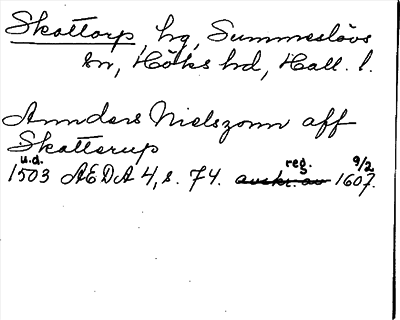 Skottorp, hg, Summeslövs
sn, Höks hd, Hall. l.
Annders Nielszonn aff
Skotterup
u.d. reg. 9/2
1503 AEDA 4, s. 74. avskr. av 1607.